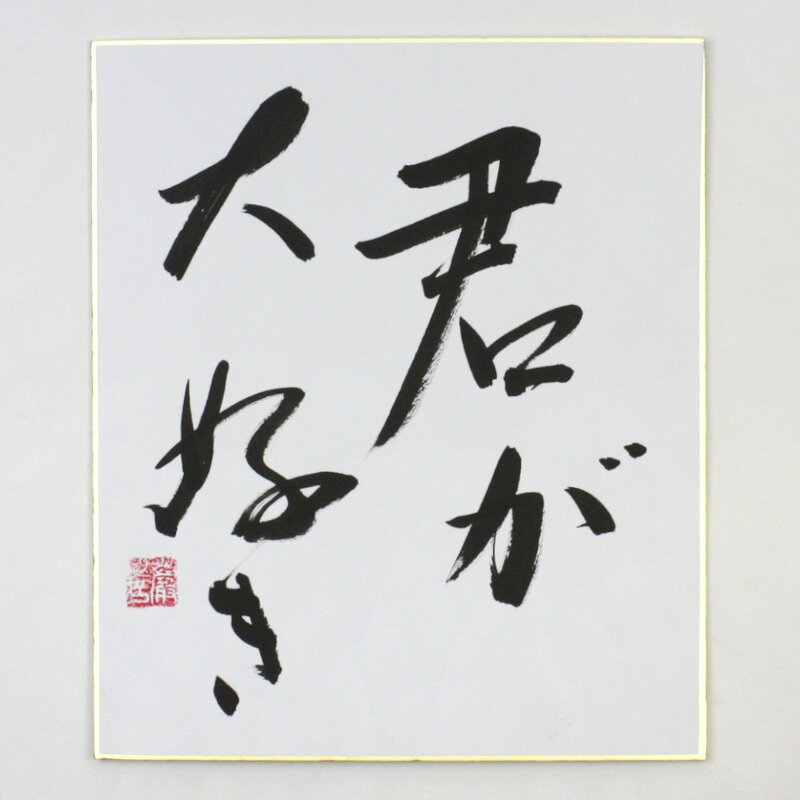 君が
大好き